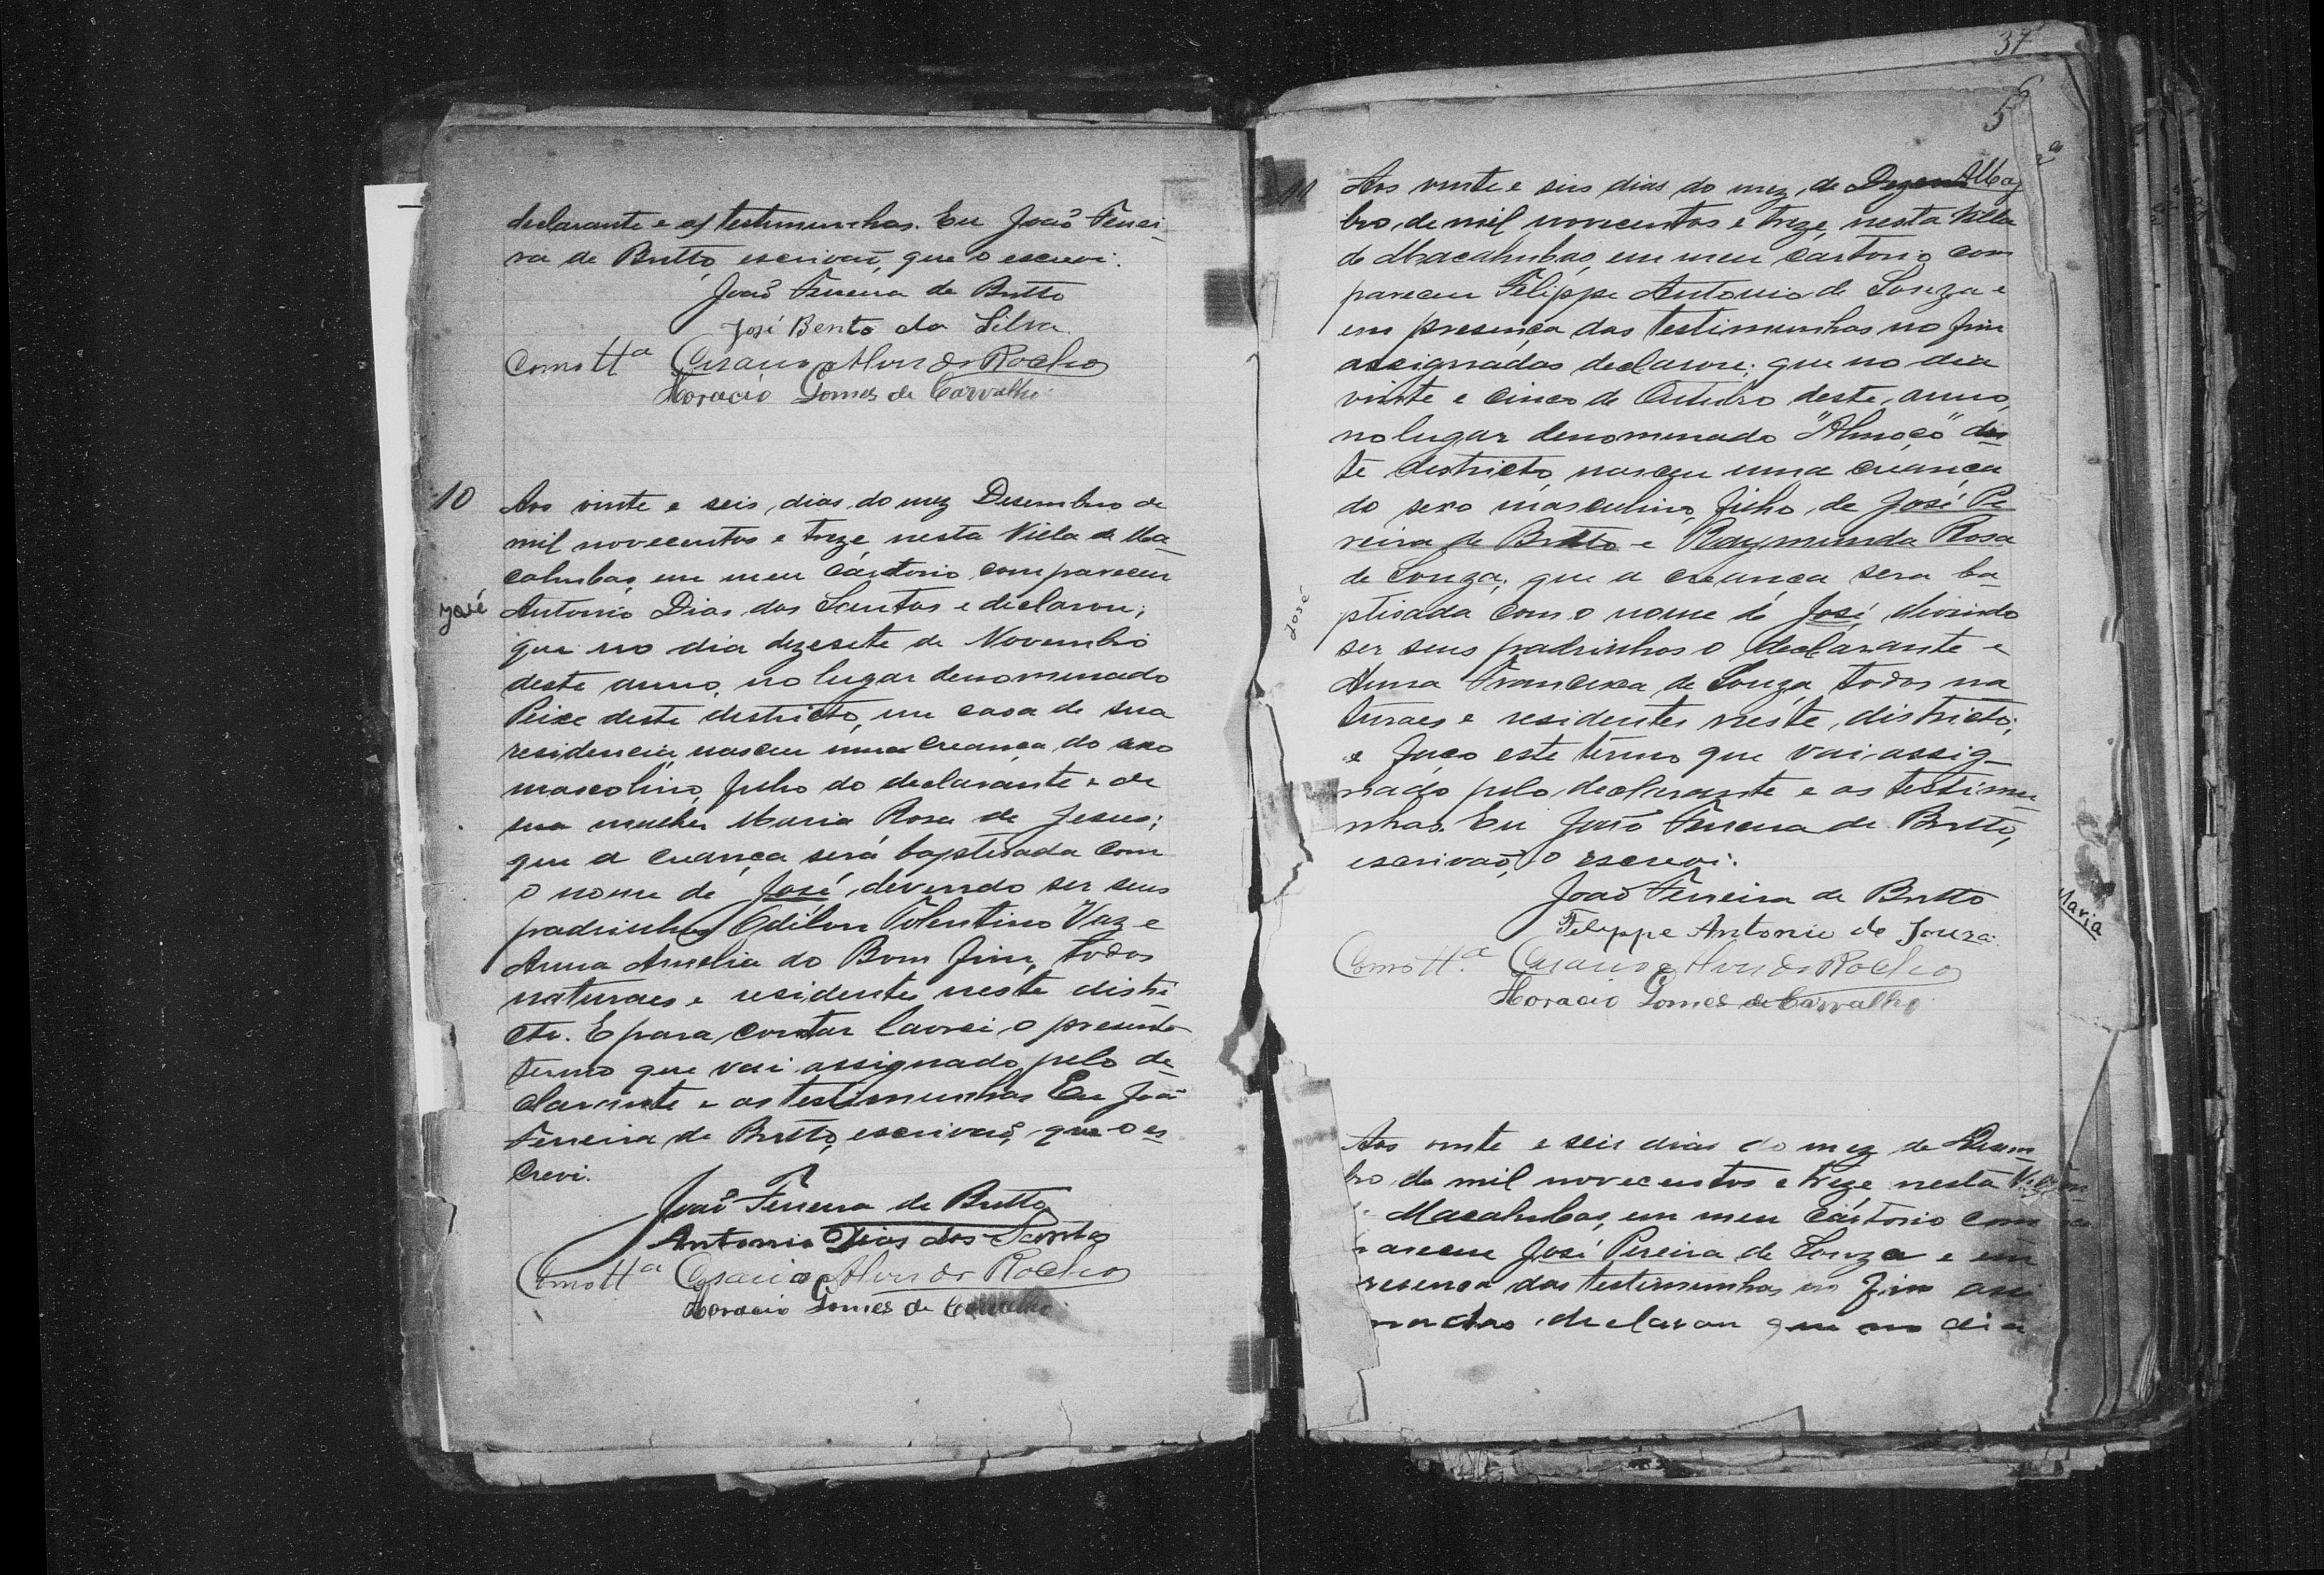 declarante e as testimunhas. Eu João Ferrei-
ra de Britto, escrivaõ, que o escrevi.
João Ferreira de Britto
José Bento da Silva
Como tta Alves da Rocha
Horacio Gomes de Carvalho
10
Aos vinte e seis dias do mez Desembro de
mil novecentos e treze nesta Villa de Ma-
cahubas, em meu cartorio, compareceu
José
Antonio Dias dos Santos e declarou;
que no dia dezesete de Novembro
deste anno, no lugar denominado
Peixe deste districto, em casa de sua
residencia, nasceu uma creança do sexo
mascolino, filho do declarante e de
sua mulher Maria Rosa de Jesus;
que a creança será baptisada com
o nome de José, devendo ser seus
padrinhos Odilon Tolentino Vaz e
Anna Amelia do Bom Fim, todos
naturaes e residentes neste distri-
cto. E para constar lavrei o presente
termo que vai assignado pelo de-
clarante e as testimunhas Eu João
Ferreira de Britto, escrivaõ, que o es-
crevi.
João Ferreira de Britto
Antonio Dias dos Santos
Como tta Alves da Rocha
Horacio Gomes de Carvalho
37
5
11
Aos vinte e seis dias do mez de
bro, de mil novecentos e treze, nesta Villa
de Macahubas, em meu cartorio com
pareceu Filippe Antonio de Souza e
em presença das testimunhas no fim
assignadas declarou: que no dia
vinte e cinco de Outubro deste anno,
no lugar denominado "Almoço" des
te districto, nasceu uma creança
do sexo masculino, filho de José Pe
reira de Britto e Raymunda Rosa
de Souza; que a creança sera ba-
José
ptisada com o nome de José, devendo
ser seus padrinhos o declarante e
Anna Francisca de Souza, todos na
turaes e residentes neste districto;
e faço este termo que vai assig-
nado pelo declarante e as testimu-
nhas. Eu João Ferreira de Britto,
escrivaõ, o escrevi.
João Ferreira de Britto
Maria
Felippe Antonio de Souza
Como tta. Alves da Rocha
Horacio Gomes de Carvalho
Aos vinte e seis dias do mez de
bro de mil novecentos e treze nesta
Macahubas, em meu cartorio com
areceu José Pereira de Souza e em
resença das testimunhas no fim assi
nadas declarou que no dia